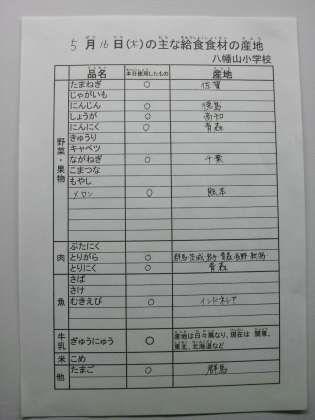 5月16日(木)の主な給食食材の産地
八幡山小学校
品名 本日使用したもの 産地
野菜・果物
たまねぎ ○ 佐賀
じゃがいも
にんじん ○ 徳島
しょうが ○ 高知
にんにく ○ 青森
きゅうり
キャベツ
ながねぎ ○ 千葉
こまつな
もやし
メロン ○ 熊本
肉
ぶたにく
とりがら ○ 群馬 茨城 青森 長野
とりにく ○ 青森
魚
さば
さけ
むきえび ○ インドネシア
牛乳 ぎゅうにゅう ○ 産地は日々異なり、現在は 関東、
東北、北海道など
米 こめ
他 たまご ○ 群馬